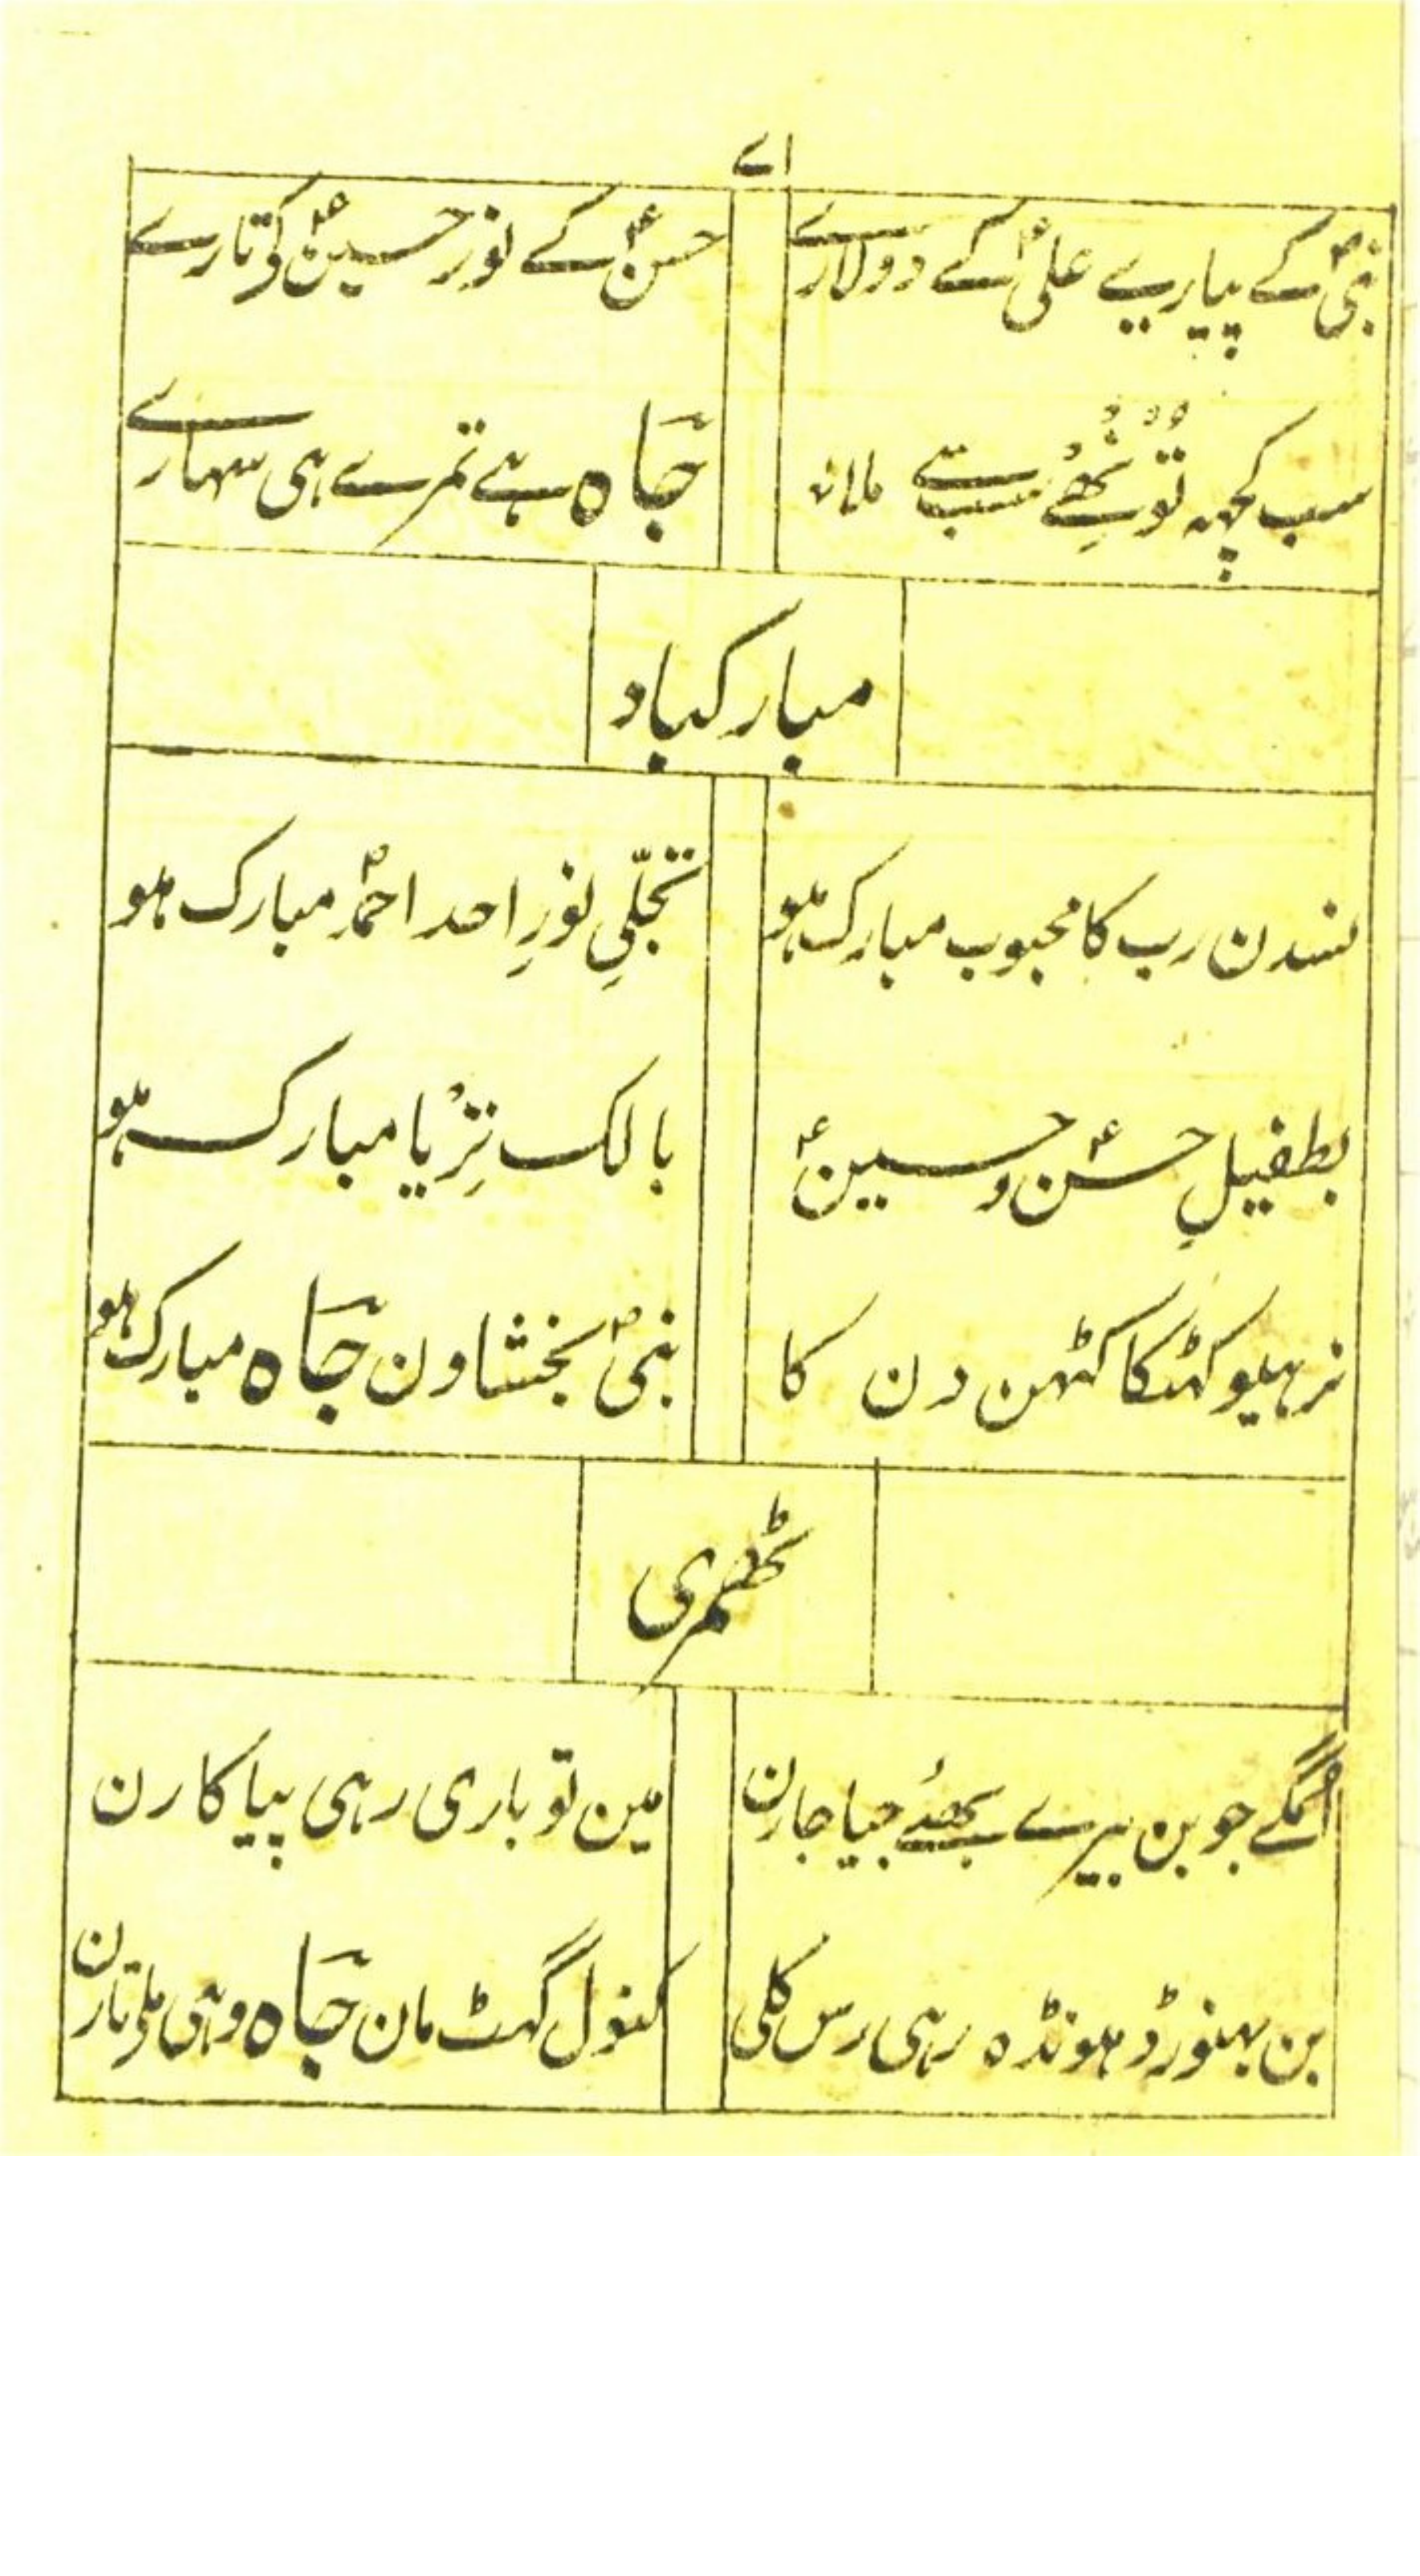 اے
نبیؐ کے پیارے علیؑ کے دولارے
حسنؑ کے نور حسینؑ کی تارے
سب کچہہ تو نُھے سب سے
جاہ ہے تمرے ہی سہارے
مبارکباد
نندن رب کا محبوب مبارک ہو
تجلّیِ نورِ احد احمدؐ مبارک ہو
بطفیلِ حسنؑ و حسینؑ
بالک تِرْیا مبارک ہو
نرہیو کہٹکا کٹہن دن کا
نبیؐ بخشاون جاہ مبارک ہو
ٹھمری
اُمگے جوبن بیرے بھئے جیا جارن
مین تو باری رہی پیا کارن
بن بہنورڈہونڈہ رہی رس کلی
کنول گہٹ مان جاہ وہی ملی تارن